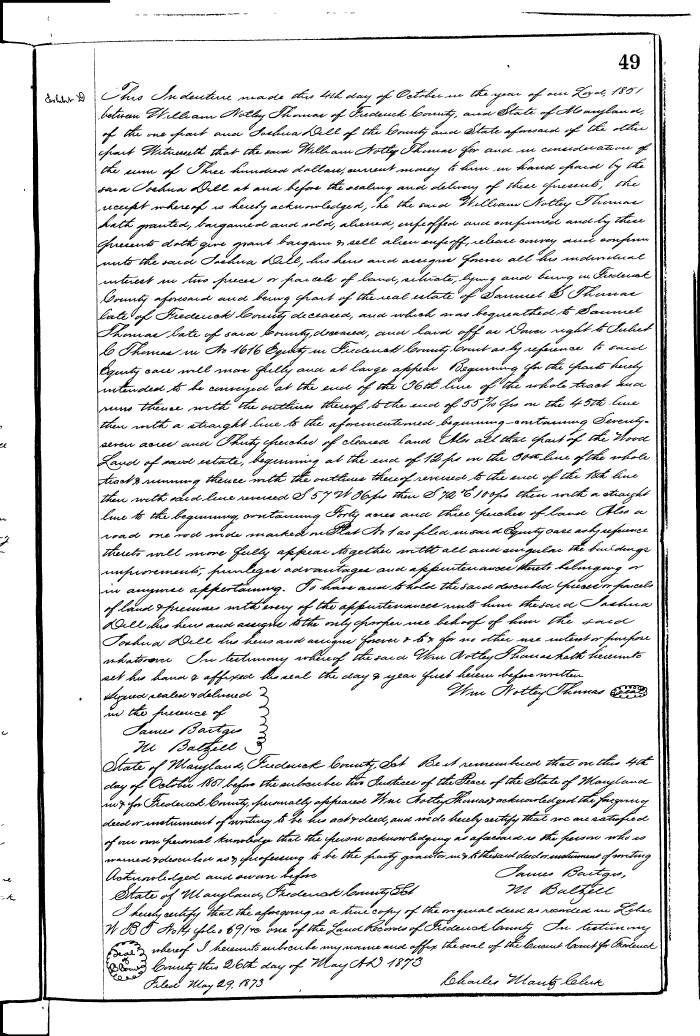 49
Exhibit D
This Indenture made this 4th day of October in the year of our Lord, 1851
between William Notley Thomas of Frederick County, and State of Maryland,
of the one part and Joshua Dill of the County and State aforsaid of the other
part Witnesseth that the said William Notley Thomas for and in consideration of
the sum of Three hundred dollars, current money to him in hand paid by the
said Joshua Dill at and before the sealing and delivery of these presents, the
receipt whereof is hereby acknowledged, he the said William Notley Thomas
hath granted, bargained and sold, aliened, enfeoffed and confirmed and by these
presents doth give grant bargain & sell alien enfeoff, release convey and confirm
unto the said Joshua Dill, his heirs and assigns forever all his individual
interest in two pieces or parcels of land, situate, lying and being in Frederick
County aforsaid and being part of the real estate of Samuel S Thomas
late of Frederick County deceased, and which was bequeathed to Samuel
Thomas late of said County, deceased, and land off as Dower right to Juliet
C Thomas in No 1616 Equity in Frederick County Court as by reference to said
Equity case will more fully and at large appear Beginning for the parts hereby
intended to be conveyed at the end of the 36th line of the whole tract and
runs thence with the outlines thereof to the end of 55 ps on the 45th line
then with a straight line to the aforementioned beginning containing Seventy-
seven acres and Thirty perches of cleared land Also all that part of the Wood
Land of said estate, beginning at the end of 12 ps on the 30th line of the whole
tract & running thence with the outlines thereof reversed to the end of the 18th line
then with said line reversed S 57 W 36 ps then S 72 E 100 ps then with a straight
line to the beginning containing Forty acres and three perches of land Also a
road one rod wide marked on Plat No 1 as filed in said Equity case as by reference
thereto will more fully appear together with all and singular the buildings
improvements, privileges advantages and appurtenances thereto belonging or
in anywise appertaining. To have and to hold the said described pieces or parcels
of land & premises with every of the appurtenances unto him the said Joshua
Dill his heirs and assigns to the only proper use behoof of him the said
Joshua Dill his heirs and assigns forever & to & for no other use intent or purpose
whatsoever In testimony whereof the said Wm Notley Thomas hath hereunto
set his hand & affixed his seal the day & year first herein before written
Signed sealed & delivered
Wm Notley Thomas
in the presence of
James Bartgis
M Baltzell
State of Maryland, Frederick County, Sct Be it remembered that on this 4th
day of October 1851 before the subscriber two Justices of the Peace of the State of Maryland
in & for Frederick County, personally appeared Wm Notley Thomas & acknowledged the foregoing
deed or instrument of writing to be his act & deed, and we do hereby certify that we are satisfied
of our own personal knowledge that the person acknowledging as aforesaid is the person who is
named & described as & professing to be the party grantor in & to the said deed or instrument of writing
Acknowledged and sworn before
James Bartgis,
M Baltzell
State of Maryland, Frederick County Sct
I hereby certify that the aforegoing is a true copy of the original deed as recorded in Liber
W B T No 14, folio 69 one of the Land Records of Frederick County In testimony
whereof I hereunto subscribe my name and affix the seal of the Circuit Court for Frederick
County this 26th day of May A D 1873
Seal of
Filed May 29, 1873
Charles Mantz Clerk